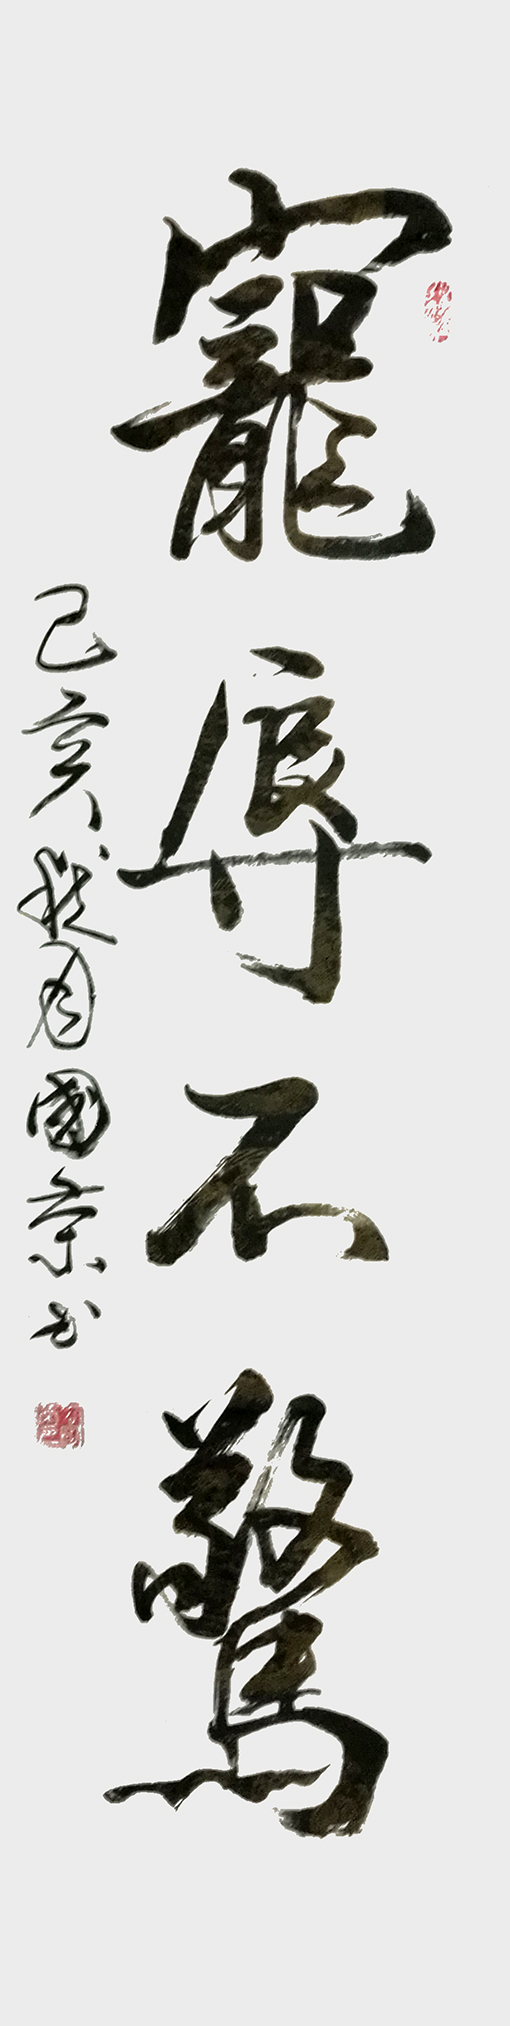 寵辱不驚
己亥秋月國榮书